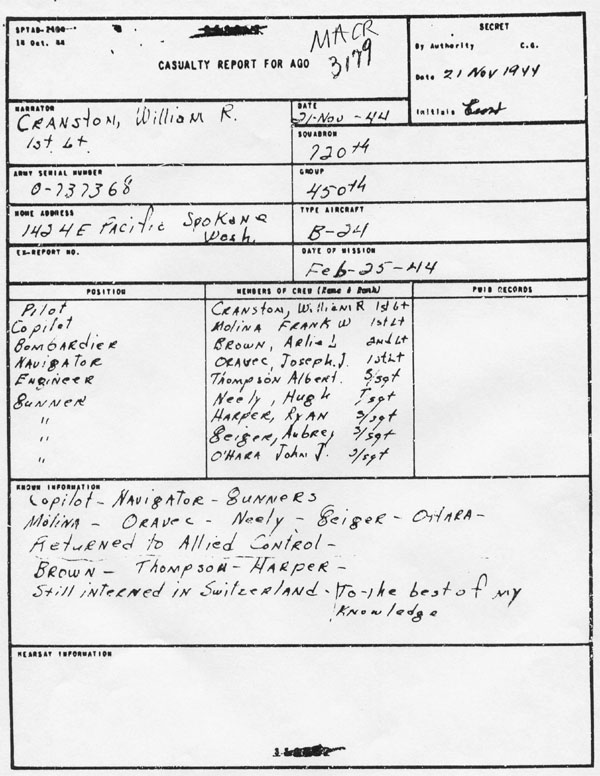 SPTAD-2400
18 Oct. 44
MACR
3179
CASUALTY REPORT FOR AGO
SECRET
By Authority C.G.
Date 21 Nov 1944
Initials
NARRATOR
CRANSTON, William R.
1st Lt.
DATE
21-Nov-44
SQUADRON
720th
ARMY SERIAL NUMBER
O-737368
GROUP
450th
HOME ADDRESS
1424 E Pacific Spokane
Wash.
TYPE AIRCRAFT
B-24
EX-REPORT NO.
DATE OF MISSION
Feb-25-44
POSITION MEMBERS OF CREW (Name & Rank) PWIB RECORDS
Pilot CRANSTON, William R 1st Lt
Copilot Molina FRANK W 1st Lt
Bombardier BROWN, Arlie L 2nd Lt
NAVIGATOR ORAVEC, Joseph. J. 1st Lt
ENgiNEER Thompson Albert. S/sgt
GUNNER Neely, Hugh T/sgt
" HARPER, RYAN S/sgt
" Geiger, Aubrey S/sgt
" O'HARA John J. S/sgt
KNOWN INFORMATION
Copilot - NAVigATOR - GUNNERS
Molina - ORAVEC - Neely - Geiger - O'HARA -
Returned to Allied Control -
BROWN - Thompson - HARPER -
Still interned in Switzerland - To-the best of my
Knowledge
HEARSAY INFORMATION